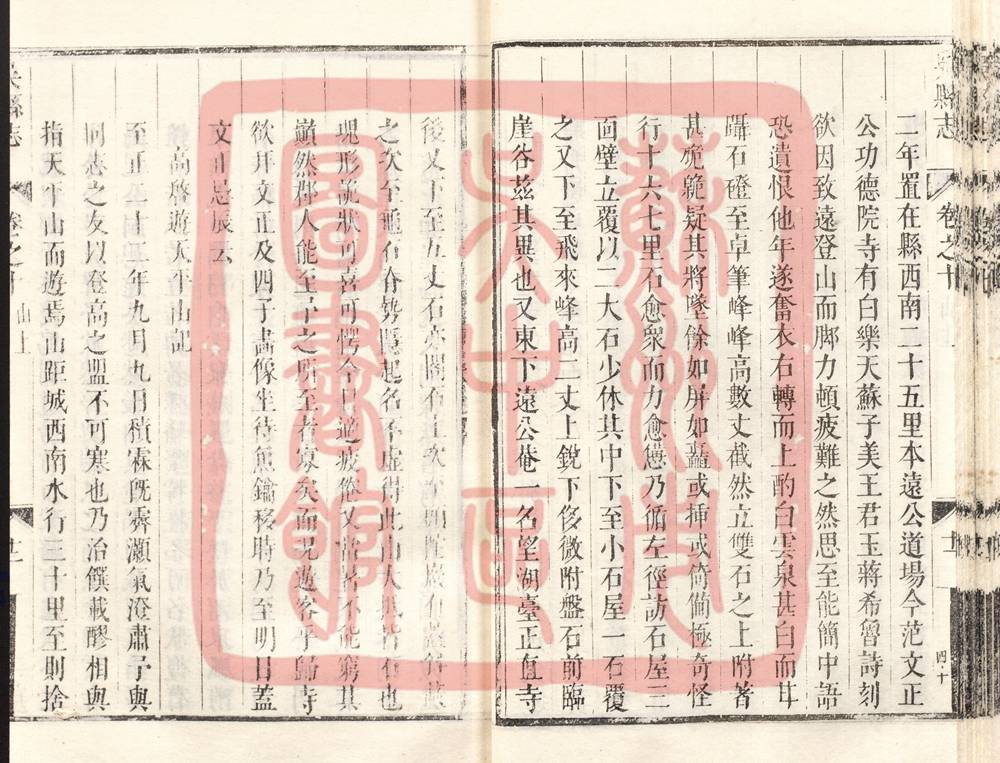 二年置在縣西南二十五里本遠公道場今范文正
公功德院寺有白樂天蘇子美王君玉蔣希魯詩刻
欲因致遠登山而腳力頓疲難之然思至能簡中語
恐遺恨他年遂奮衣右轉而上酌白雲泉甚白而甘
躡石磴至卓筆峰峰高數丈截然立雙石之上附著
甚危巍疑其將墜餘如屏如矗或插或倚備極奇怪
行十六七里石愈衆而力愈憊乃循左徑訪石屋三
面壁立覆以二大石少休其中下至小石屋一石覆
之又下至飛來峰高二丈上銳下侈微附盤石前臨
崖谷茲其異也又東下遠公菴一名望湖臺正直寺
後又下至五丈石
之次至龜石脊勢隱起名不虛得此山大抵皆石也
現形詭狀可喜可愕今日適疲倦又當暑不能窮其
巔然郡人能至予之所至者寡矣而況遊客乎歸寺
欲拜文正及四子畫像坐待魚鑰移時乃至明日蓋
文正忌辰云
高啓遊天平山記
至正二十二年九月九日積霖旣霽灝氣澄肅予與
同志之友以登高之盟不可寒也乃治饌載醪相與
指天平山而遊焉山距城西南水行三十里至則捨
吳縣志
卷之十
山上
四十
蘇州市
吳中區
圖書館